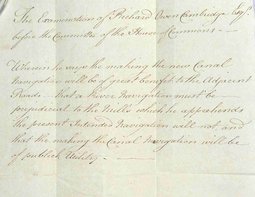 The Examination of Richard Owen Cambridge Esqr.
before the Committee of the House of Commons —
Wherein he says the making the new Canal
Navigation will be of great benefit to the Adjacent
Roads — that a River Navigation must be
prejudicial to the Mills which he apprehends
the present Intended Navigation will not and
that the making the Canal Navigation will be
of publick Utility. —